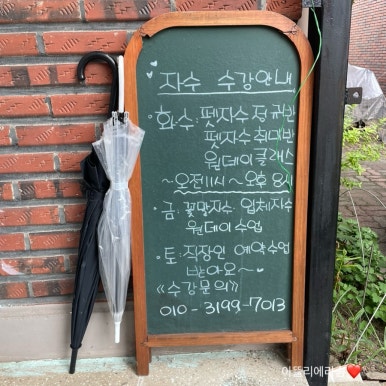 자수 수강안내
· 화.수: 펫자수 정규반
펫자수 취미반
원데이클래스
~오전11시~오후8시
· 금: 꽃말자수. 입체자수
원데이수업
· 토: 직장인 예약수업
받아요~
《수강문의》
010-3199-7013